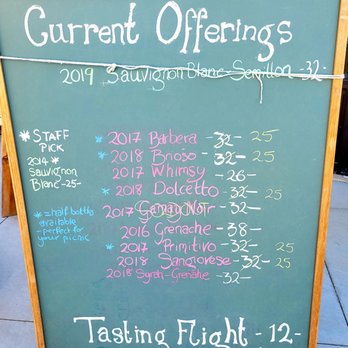 Current Offerings
2019 Sauvignon Blanc-Semillon -32-
* STAFF PICK
2014 *
Sauvignon
Blanc -25-
* = half bottles
available
- perfect for
your picnic
2017 Barbera -32- 25
* 2018 Brioso -32- 25
2017 Whimsy -26-
* 2018 Dolcetto -32- 25
2017 Noir -32-
2016 Grenache -38-
* 2017 Primitivo -32- 25
2018 Sangiovese -32- 25
2018 Syrah-Grenache -32-
Tasting Flight -12-